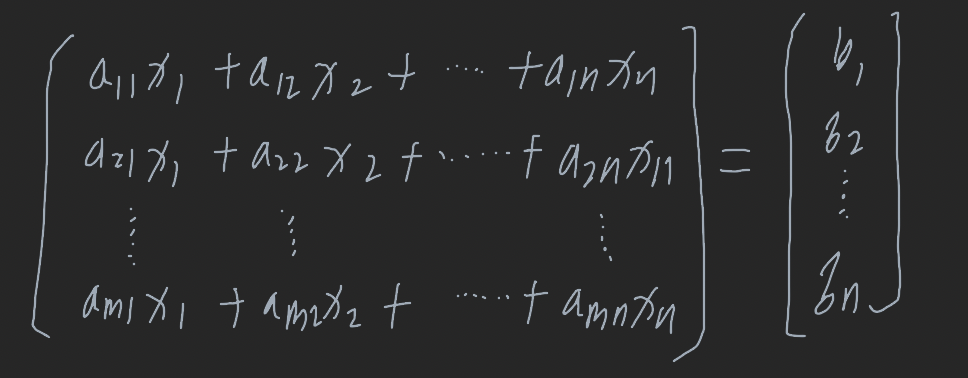 a₁₁x₁ + a₁₂x₂ + ..... + a₁ₙxₙ = b₁
a₂₁x₁ + a₂₂x₂ + ...... + a₂ₙxₙ b₂
⋮ ⋮ ⋮ ⋮
aₘ₁x₁ + aₘ₂x₂ + ...... + aₘₙxₙ bₙ